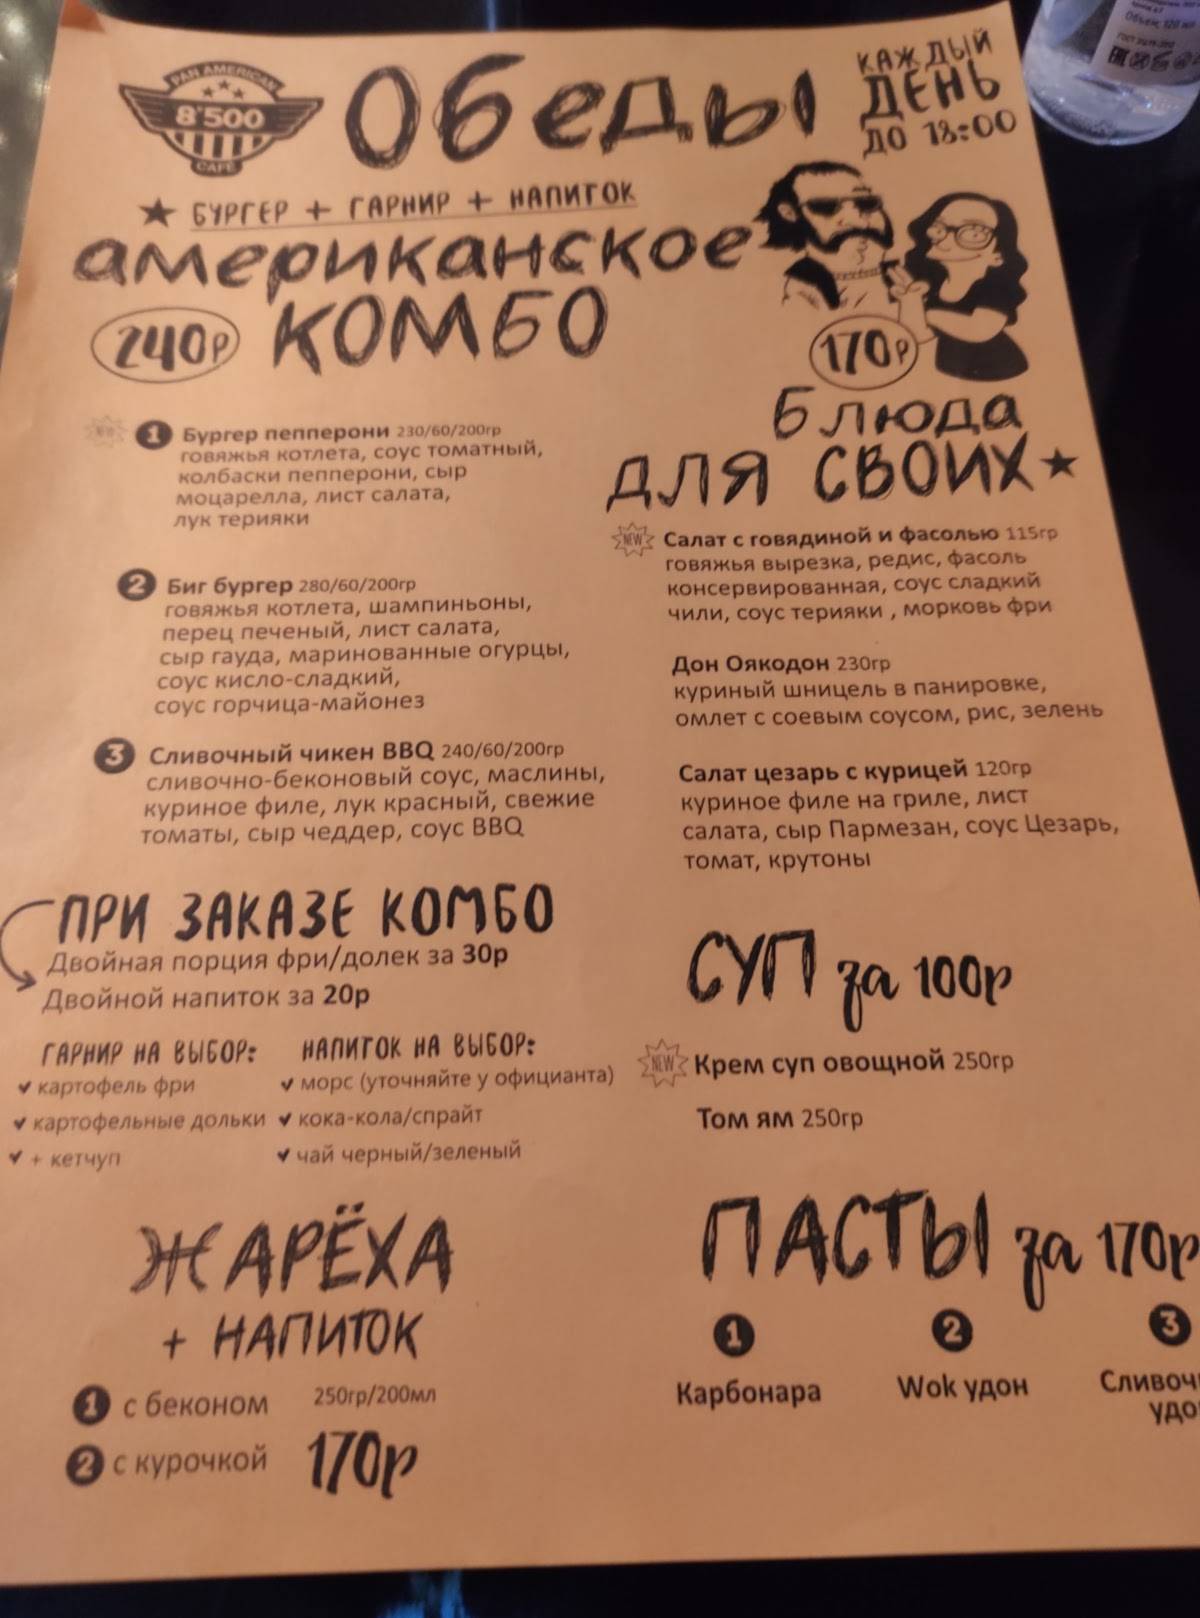 PAN AMERICAN
8'500
CAFE
Обеды
КАЖДЫЙ
ДЕНЬ
ДО 18:00
★ БУРГЕР + ГАРНИР + НАПИТОК
американское
КОМБО
240р
1 Бургер пепперони 230/60/200гр
говяжья котлета, соус томатный,
колбаски пепперони, сыр
моцарелла, лист салата,
лук терияки
2 Биг бургер 280/60/200гр
говяжья котлета, шампиньоны,
перец печеный, лист салата,
сыр гауда, маринованные огурцы,
соус кисло-сладкий,
соус горчица-майонез
3 Сливочный чикен BBQ 240/60/200гр
сливочно-беконовый соус, маслины,
куриное филе, лук красный, свежие
томаты, сыр чеддер, соус BBQ
ПРИ ЗАКАЗЕ КОМБО
Двойная порция фри/долек за 30р
Двойной напиток за 20р
ГАРНИР НА ВЫБОР:
картофель фри
картофельные дольки
+ кетчуп
НАПИТОК НА ВЫБОР:
морс (уточняйте у официанта)
кока-кола/спрайт
чай черный/зеленый
ЖАРЁХА
+ НАПИТОК
1 с беконом 250гр/200мл
2 с курочкой 170р
170р
БЛЮДА
ДЛЯ СВОИХ ★
NEW Салат с говядиной и фасолью 115гр
говяжья вырезка, редис, фасоль
консервированная, соус сладкий
чили, соус терияки , морковь фри
Дон Оякодон 230гр
куриный шницель в панировке,
омлет с соевым соусом, рис, зелень
Салат цезарь с курицей 120гр
куриное филе на гриле, лист
салата, сыр Пармезан, соус Цезарь,
томат, крутоны
СУП за 100р
NEW Крем суп овощной 250гр
Том ям 250гр
ПАСТЫ за 170р
1
Карбонара
2
Wok удон
3
Сливоч
удо